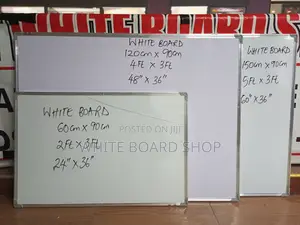 WHITE BOARD
WHITE BOARD
120cm x 90cm
4Ft x 3Ft
48" x 36"
WHITE BOARD
150cm x 90cm
5Ft x 3Ft
60" x 36"
WHITE BOARD
60cm x 90cm
2Ft x 3Ft
24" x 36"
POSTED ON JIJI
WHITE BOARD SHOP